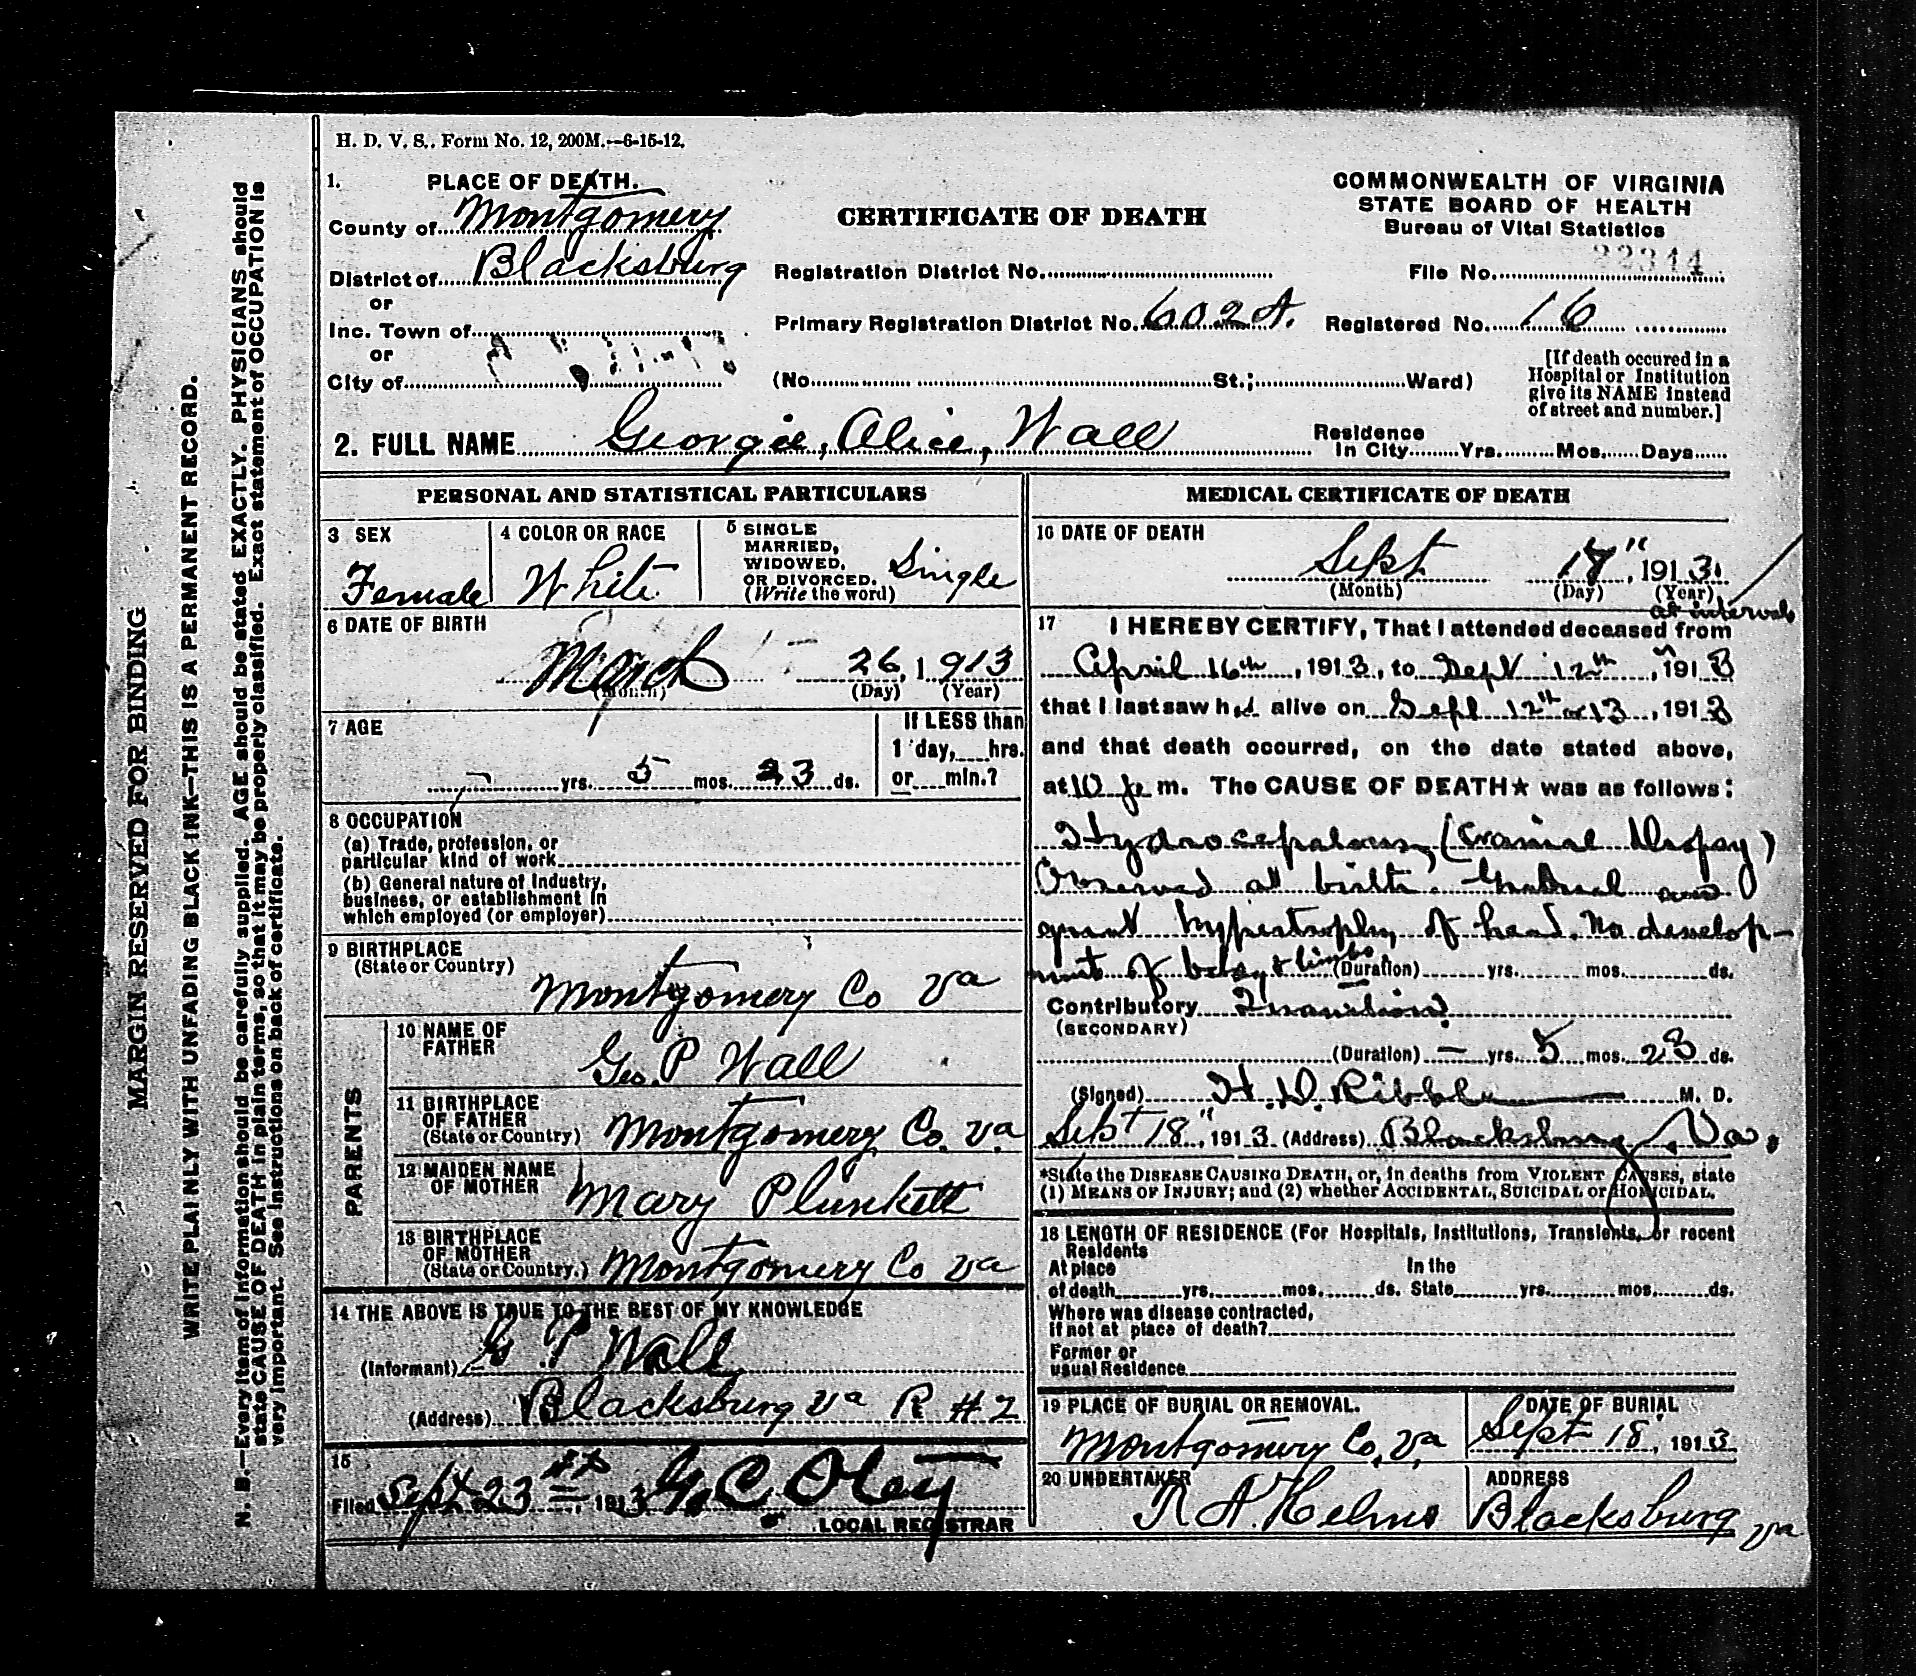 H. D. V. S., Form No. 12, 200M.--6-15-12.
1. PLACE OF DEATH.
County of Montgomery
District of Blacksburg
or
Inc. Town of
or
City of
CERTIFICATE OF DEATH
Registration District No.
Primary Registration District No. 602A.
(No. St.; Ward)
COMMONWEALTH OF VIRGINIA
STATE BOARD OF HEALTH
Bureau of Vital Statistics
File No. 22344
Registered No. 16
[If death occured in a
Hospital or Institution
give its NAME instead
of street and number.]
2. FULL NAME Georgie, Alice, Wall
Residence
In City Yrs. Mos. Days
PERSONAL AND STATISTICAL PARTICULARS
3 SEX
Female
4 COLOR OR RACE
White
5 SINGLE
MARRIED,
WIDOWED,
OR DIVORCED.
(Write the word)
Single
6 DATE OF BIRTH
March 26, 1913
(Month) (Day) (Year)
7 AGE
- yrs. 5 mos. 23 ds.
If LESS than
1 day, hrs.
or min.?
8 OCCUPATION
(a) Trade, profession, or
particular kind of work
(b) General nature of Industry,
business, or establishment in
which employed (or employer)
9 BIRTHPLACE
(State or Country)
Montgomery Co Va
PARENTS
10 NAME OF
FATHER
Geo. P Wall
11 BIRTHPLACE
OF FATHER
(State or Country)
Montgomery Co. Va
12 MAIDEN NAME
OF MOTHER
Mary Plunkett
13 BIRTHPLACE
OF MOTHER
(State or Country.)
Montgomery Co Va
14 THE ABOVE IS TRUE TO THE BEST OF MY KNOWLEDGE
(Informant) G P Wall
(Address) Blacksburg Va R #2
15
Filed Sept 23 1913 G. C. Oley
LOCAL REGISTRAR
MEDICAL CERTIFICATE OF DEATH
16 DATE OF DEATH
Sept 17", 1913.
(Month) (Day) (Year)
at intervals
17 I HEREBY CERTIFY, That I attended deceased from
April 16th, 1913, to Sept 12th, 1913
that I last saw her alive on Sept 12th or 13, 1913
and that death occurred, on the date stated above,
at 10 p m. The CAUSE OF DEATH★ was as follows:
Hydrocepalous, (Cranial Dropsy)
Observed at birth. Gradual and
great hypertrophy of head. No develop-
ment of body & limbs. (Duration) yrs. mos. ds.
Contributory Inanition.
(SECONDARY)
(Duration) - yrs. 5 mos. 23 ds.
(Signed) H. D. Ribble M. D.
Sept 18", 1913 (Address) Blacksburg, Va.
*State the DISEASE CAUSING DEATH, or, in deaths from VIOLENT CAUSES, state
(1) MEANS OF INJURY; and (2) whether ACCIDENTAL, SUICIDAL or HOMICIDAL.
18 LENGTH OF RESIDENCE (For Hospitals, Institutions, Transients, or recent
Residents
At place In the
of death yrs. mos. ds. State yrs. mos. ds.
Where was disease contracted,
if not at place of death?
Former or
usual Residence
19 PLACE OF BURIAL OR REMOVAL.
Montgomery Co, Va
DATE OF BURIAL
Sept 18, 1913
20 UNDERTAKER
R A. Helms
ADDRESS
Blacksburg Va
MARGIN RESERVED FOR BINDING
WRITE PLAINLY WITH UNFADING BLACK INK—THIS IS A PERMANENT RECORD.
N. B.—Every item of information should be carefully supplied. AGE should be stated EXACTLY. PHYSICIANS should
state CAUSE OF DEATH in plain terms, so that it may be properly classified. Exact statement of OCCUPATION is
very important. See instructions on back of certificate.